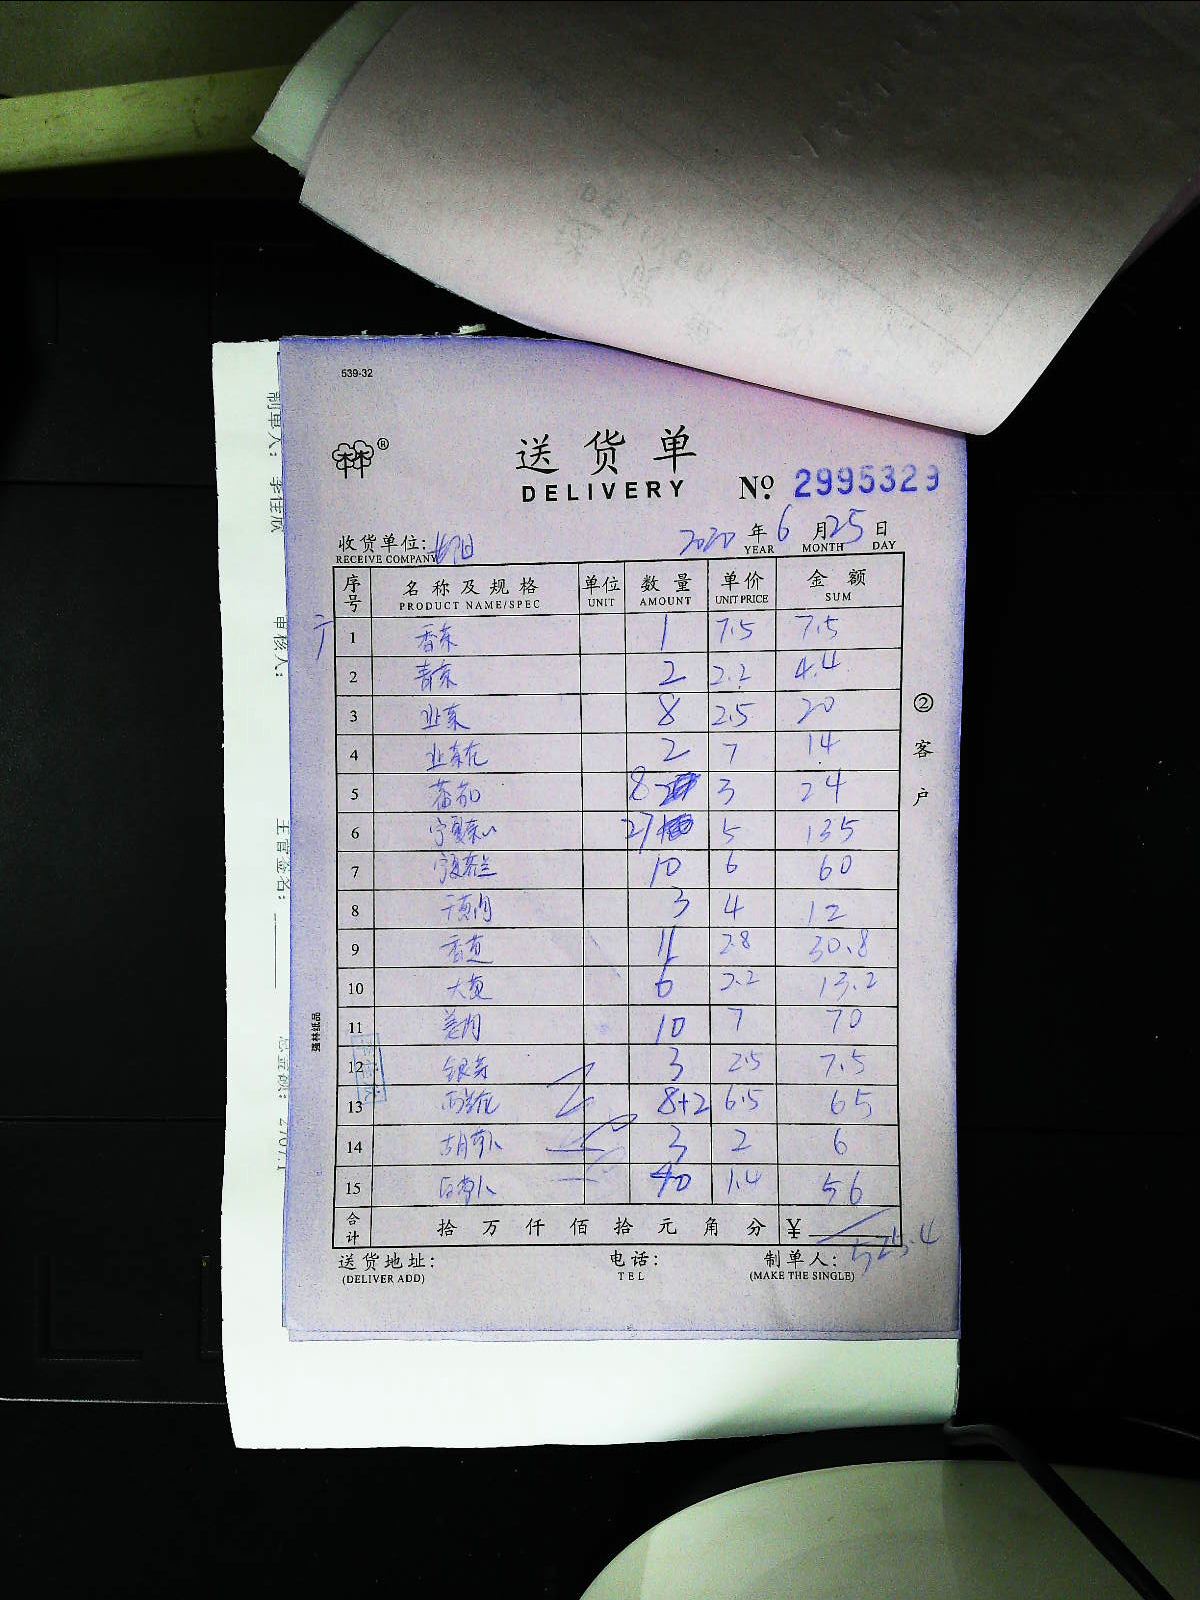 539-32
®
送货单
DELIVERY Nº 2995329
收货单位:
RECEIVE COMPANY
2020 年 6 月 25 日
YEAR MONTH DAY
序号 名称及规格 单位 数量 单价 金额
PRODUCT NAME/SPEC UNIT AMOUNT UNIT PRICE SUM
1 香菜 1 7.5 7.5
2 青菜 2 2.2 4.4
3 8 2.5 20
4 2 7 14
5 番茄 8 3 24
6 宁夏菜 27 5 135
7 宁夏 10 6 60
8 3 4 12
9 11 2.8 30.8
10 大 6 2.2 13.2
11 10 7 70
12 银芽 3 2.5 7.5
13 西兰花 8+2 6.5 65
14 胡萝卜 3 2 6
15 白萝卜 40 1.4 56
合计 拾 万 仟 佰 拾 元 角 分 ¥
525.4
送货地址: 电话: 制单人:
(DELIVER ADD) TEL (MAKE THE SINGLE)
② 客户
强林纸品
制单人: 李佳欣
审核人:
主管签名:
总金额: 2707.1